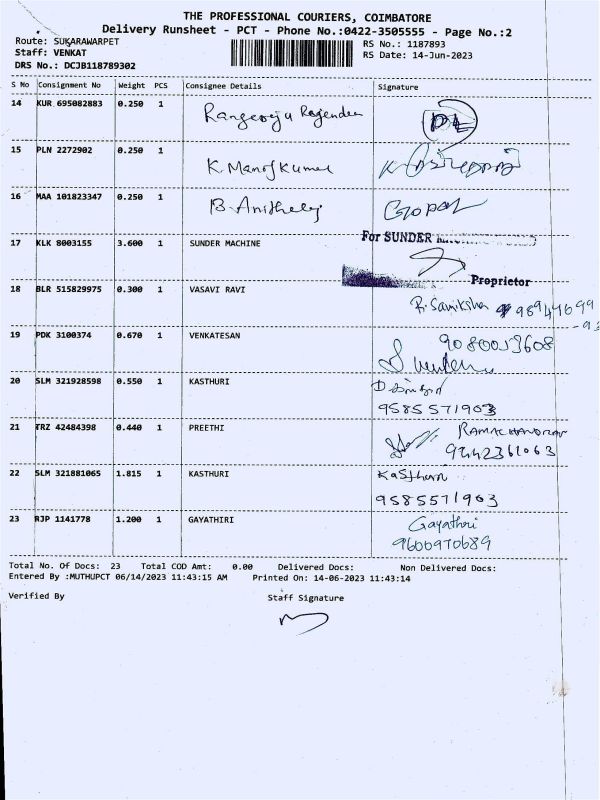 THE PROFESSIONAL COURIERS, COIMBATORE
Delivery Runsheet - PCT - Phone No.:0422-3505555 - Page No.:2
Route: SUKARAWARPET
RS No.: 1187893
Staff: VENKAT
RS Date: 14-Jun-2023
DRS No.: DCJB118789302
S No Consignment No Weight PCS Consignee Details Signature
14 KUR 695082883 0.250 1
15 PLN 2272902 0.250 1 K. Manojkumar
16 MAA 101823347 0.250 1 Gopal
17 KLK 8003155 3.600 1 SUNDER MACHINE For SUNDER
Proprietor
18 BLR 515829975 0.300 1 VASAVI RAVI
19 PDK 3100374 0.670 1 VENKATESAN
20 SLM 321928598 0.550 1 KASTHURI
9585571903
21 TRZ 42484398 0.440 1 PREETHI RAMACHANDRAN
9442361063
22 SLM 321881065 1.815 1 KASTHURI
9585571903
23 RJP 1141778 1.200 1 GAYATHIRI Gayathri
9600970689
Total No. Of Docs: 23 Total COD Amt: 0.00 Delivered Docs: Non Delivered Docs:
Entered By :MUTHUPCT 06/14/2023 11:43:15 AM Printed On: 14-06-2023 11:43:14
Verified By Staff Signature